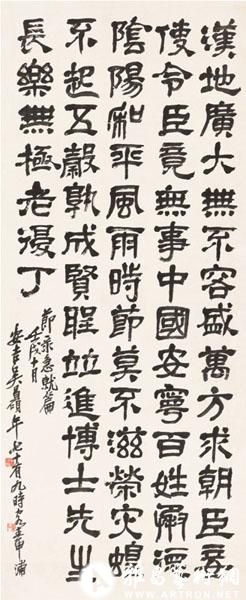 漢地廣大無不容盛萬方來朝臣妾
使令臣竟無事中國安寧百姓承德
陰陽和平風雨時節莫不滋榮災蝗
不起五穀孰成賢聖並進博士先生
長樂無極老復丁
節錄急就篇
壬戌十月
安吉吳昌碩年七十有九時申浦
WWW.ARTRON.NET